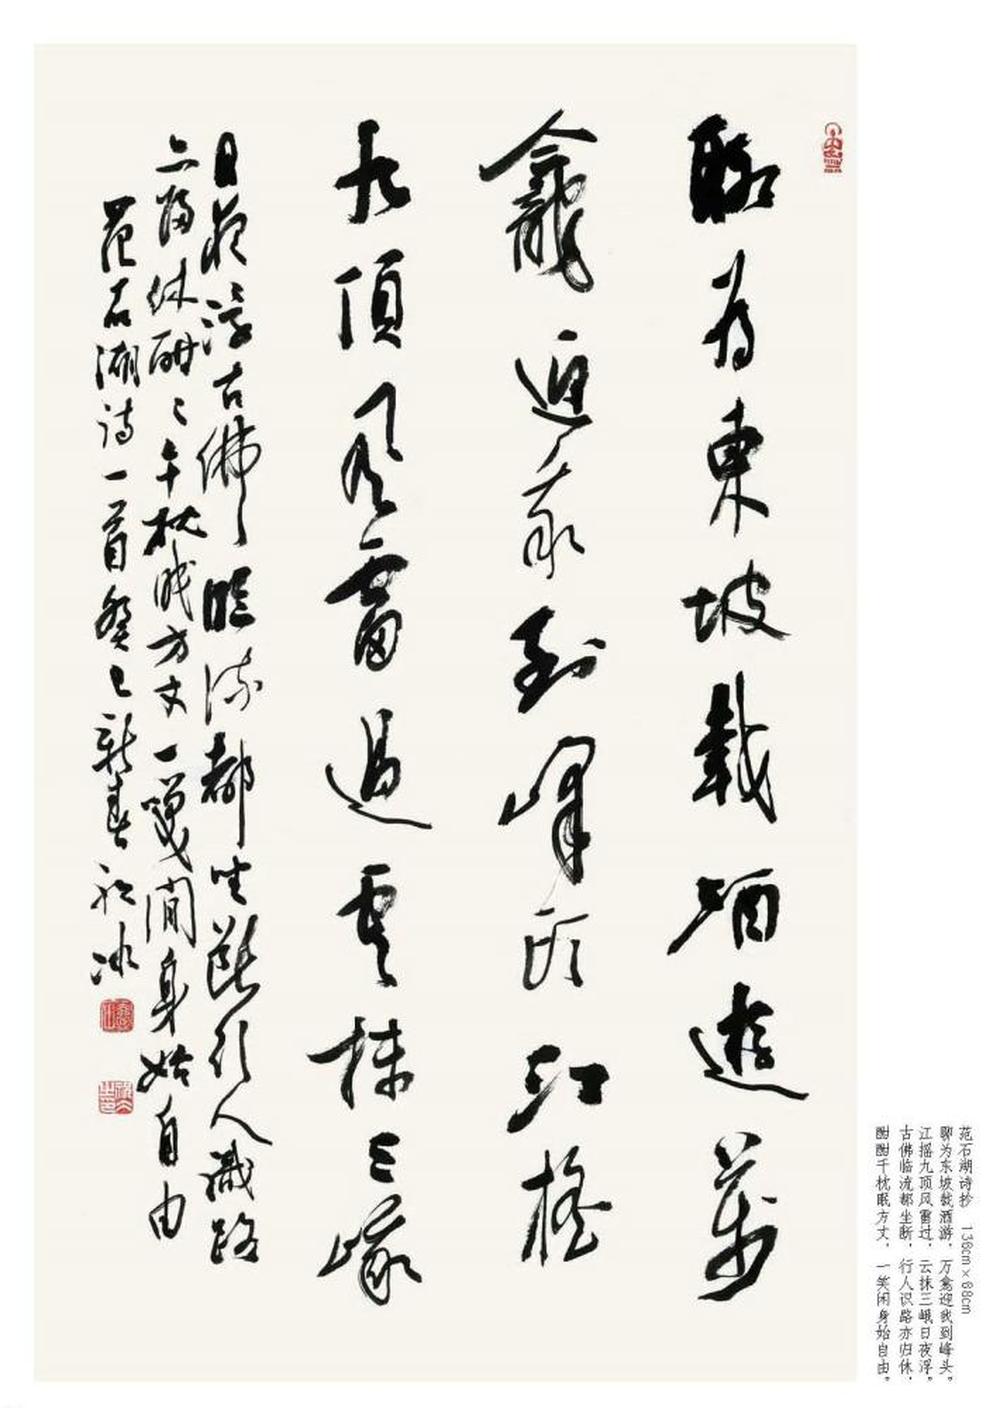 聊為東坡載酒遊萬
龕迎我到峰頭江搖
九頂風雷過雲抹三峨
日夜浮古佛臨流都坐斷行人識路
亦歸休酣〻午枕眠方丈一笑閒身始自由
范石湖詩一首癸巳新春
范石湖诗抄 136cm×68cm
聊为东坡载酒游，万龛迎我到峰头。
江摇九顶风雷过，云抹三峨日夜浮。
古佛临流都坐断，行人识路亦归休，
酣酣千枕眠方丈，一笑闲身始自由。